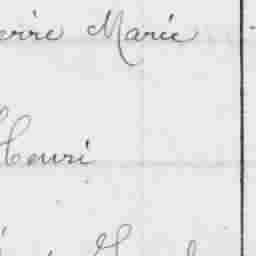 erre Marie
Henri